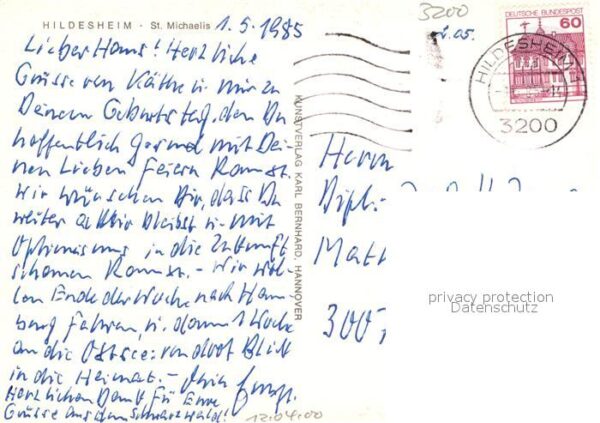 HILDESHEIM · St. Michaelis
1.5.1985
Lieber Hans! Herzliche
Grüsse von Käthe u. mir zu
Deinem Geburtstag, den Du
hoffentlich gesund mit Dei-
nen Lieben feiern kannst.
Wir wünschen Dir, dass Du
weiter aktiv bleibst u. mit
Optimismus in die Zukunft
schauen kannst. – Wir wol-
len Ende der Woche nach Ham-
burg fahren, u. dann 1 Woche
an die Ostsee: von dort Blick
in die Heimat. – Dein
Herzlichen Dank für Eure
Grüsse aus dem Schwarzwald!
12.04.00
KUNSTVERLAG KARL BERNHARD, HANNOVER
3200
DEUTSCHE BUNDESPOST
60
HILDESHEIM 1
3200
Herrn
Dipl.-
Matt
300
privacy protection
Datenschutz